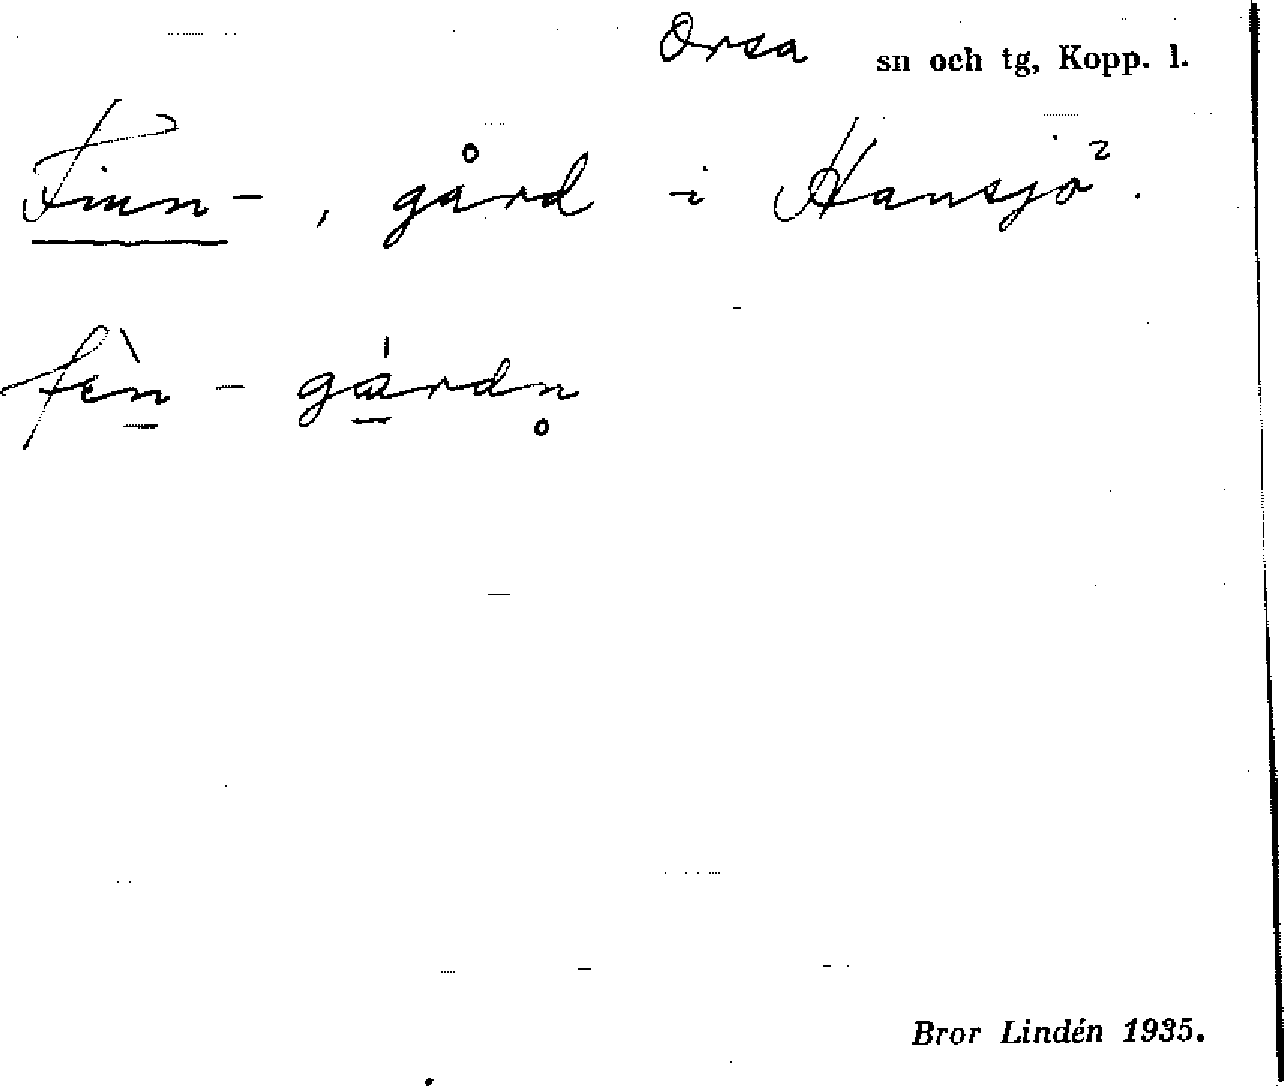 Orsa sn och tg, Kopp. l.
Finn-, gård i Hansjö².
fèn - gárdn̥
Bror Lindén 1935.